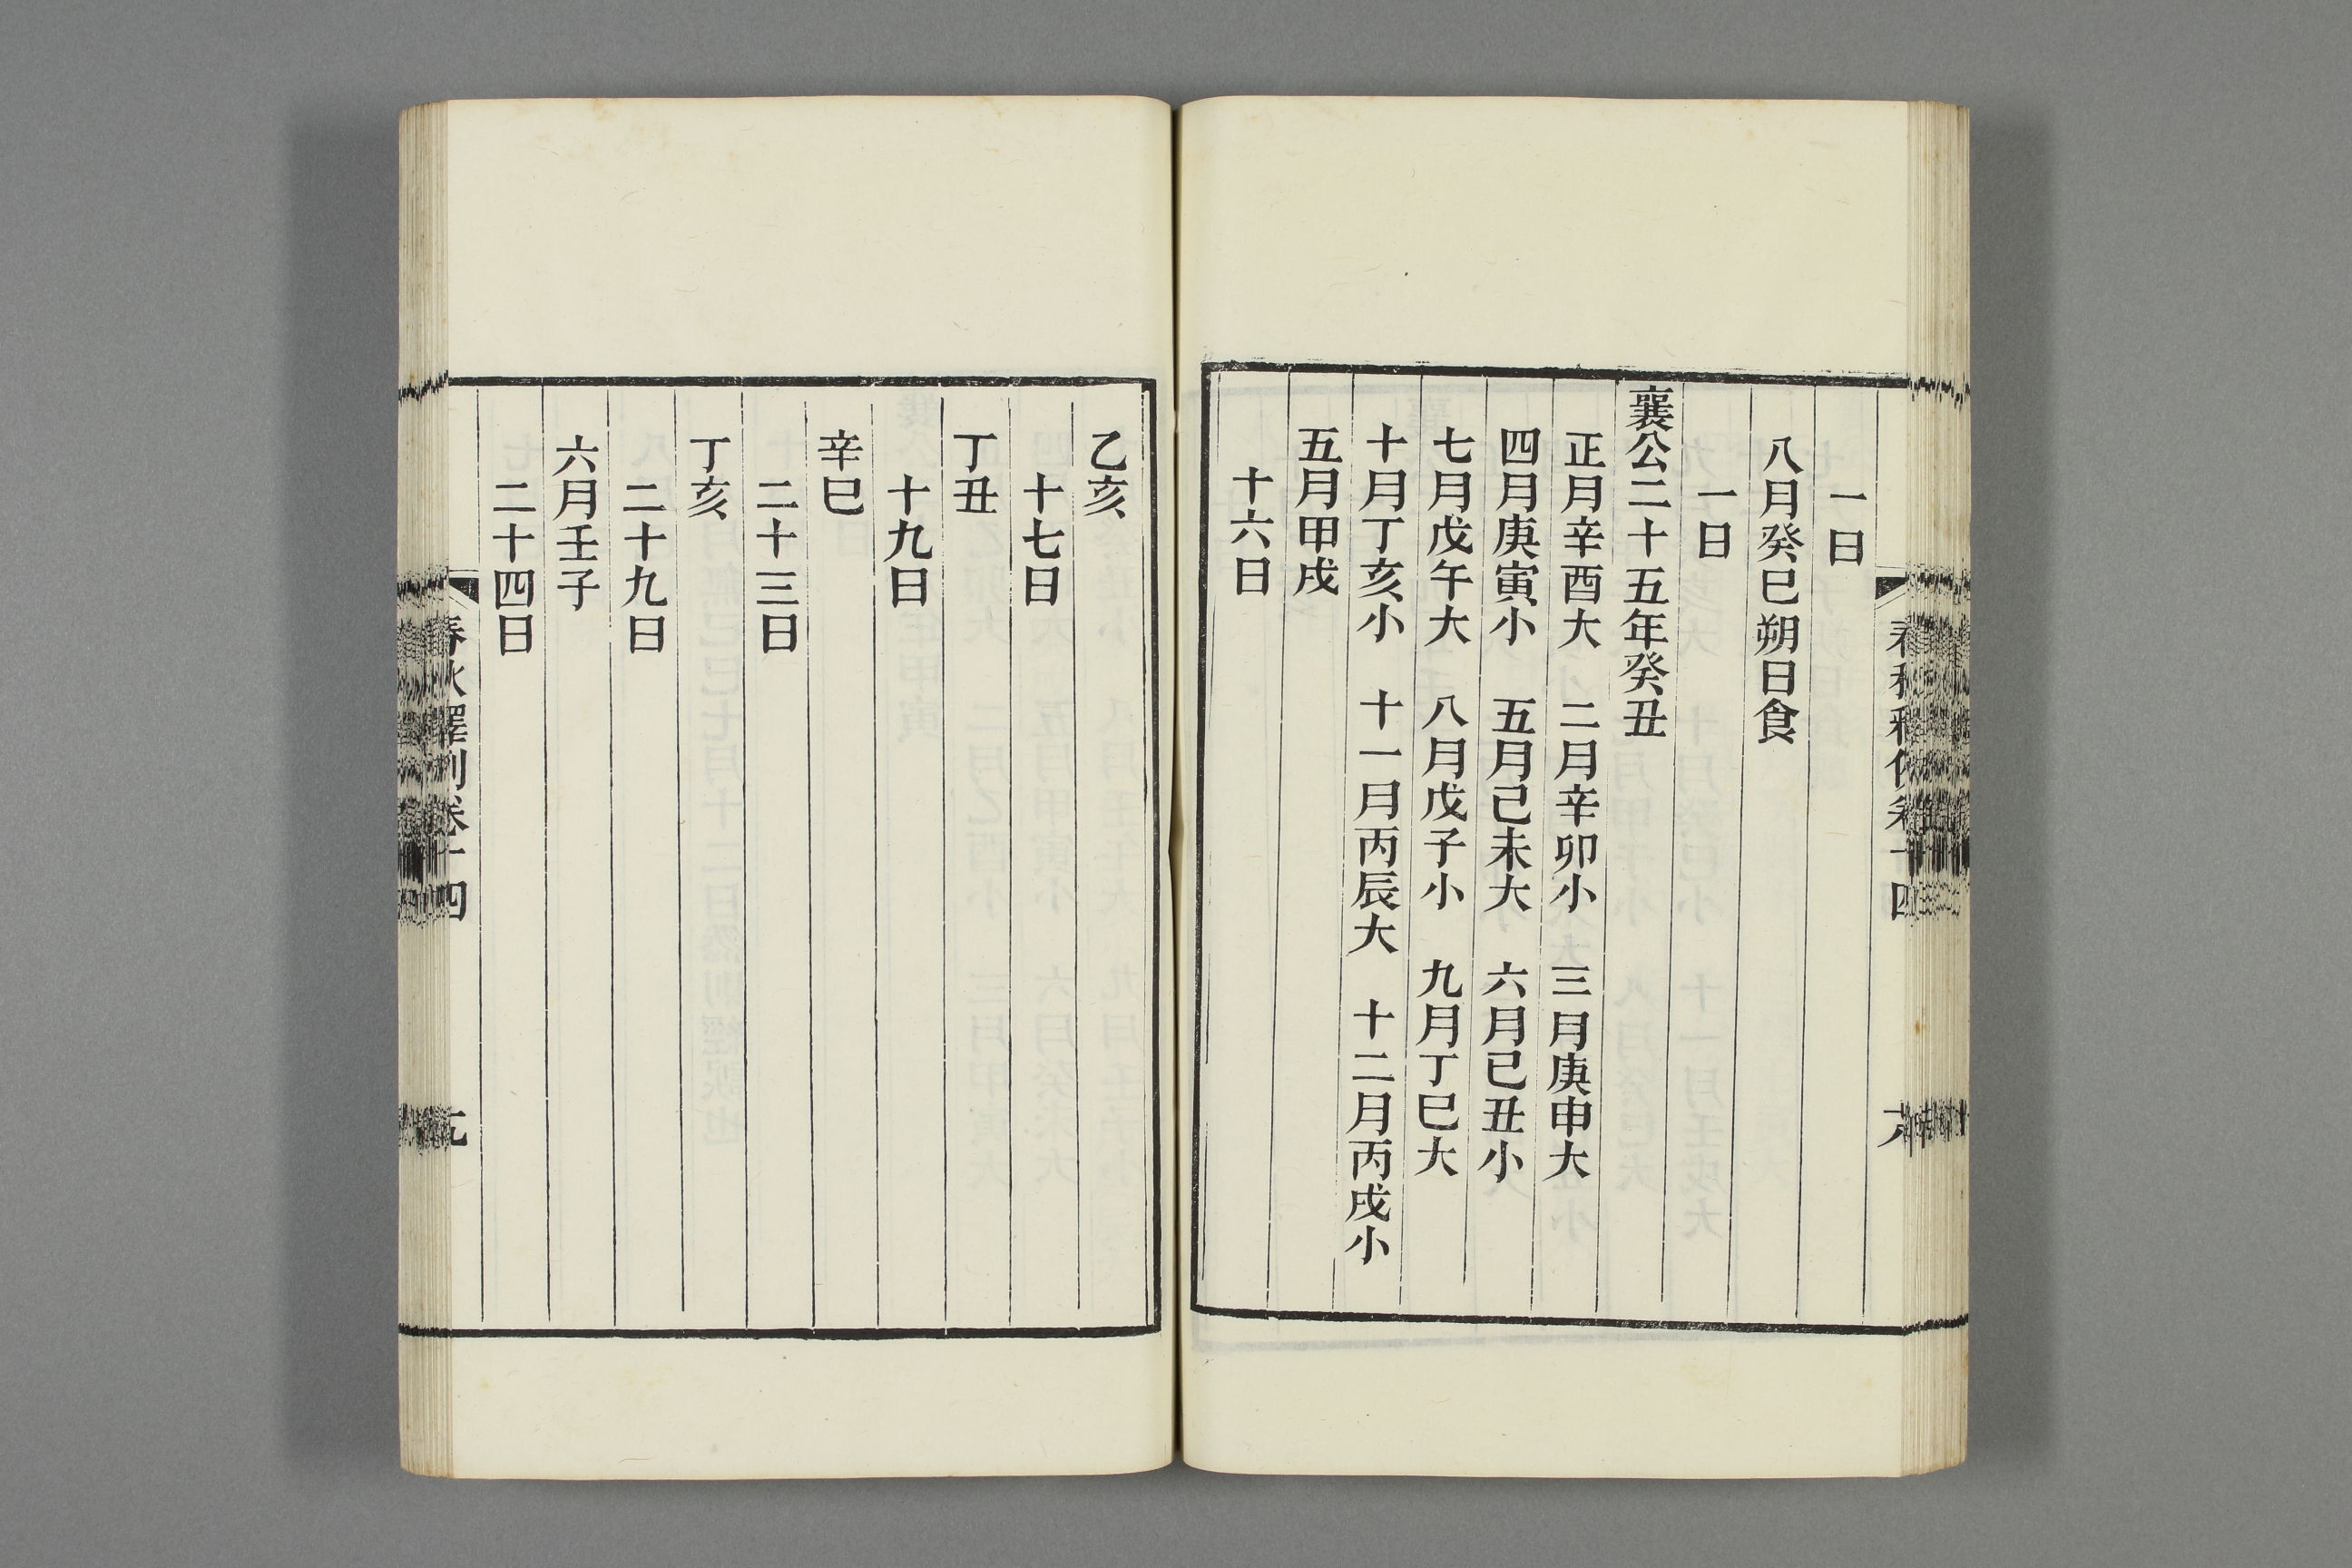 一日
八月癸巳朔日食
一日
襄公二十五年癸丑
正月辛酉大　二月辛卯小　三月庚申大
四月庚寅小　五月己未大　六月己丑小
七月戊午大　八月戊子小　九月丁巳大
十月丁亥小　十一月丙辰大　十二月丙戌小
五月甲戌
十六日
乙亥
十七日
丁丑
十九日
辛巳
二十三日
丁亥
二十九日
六月壬子
二十四日
春秋釋例卷十四